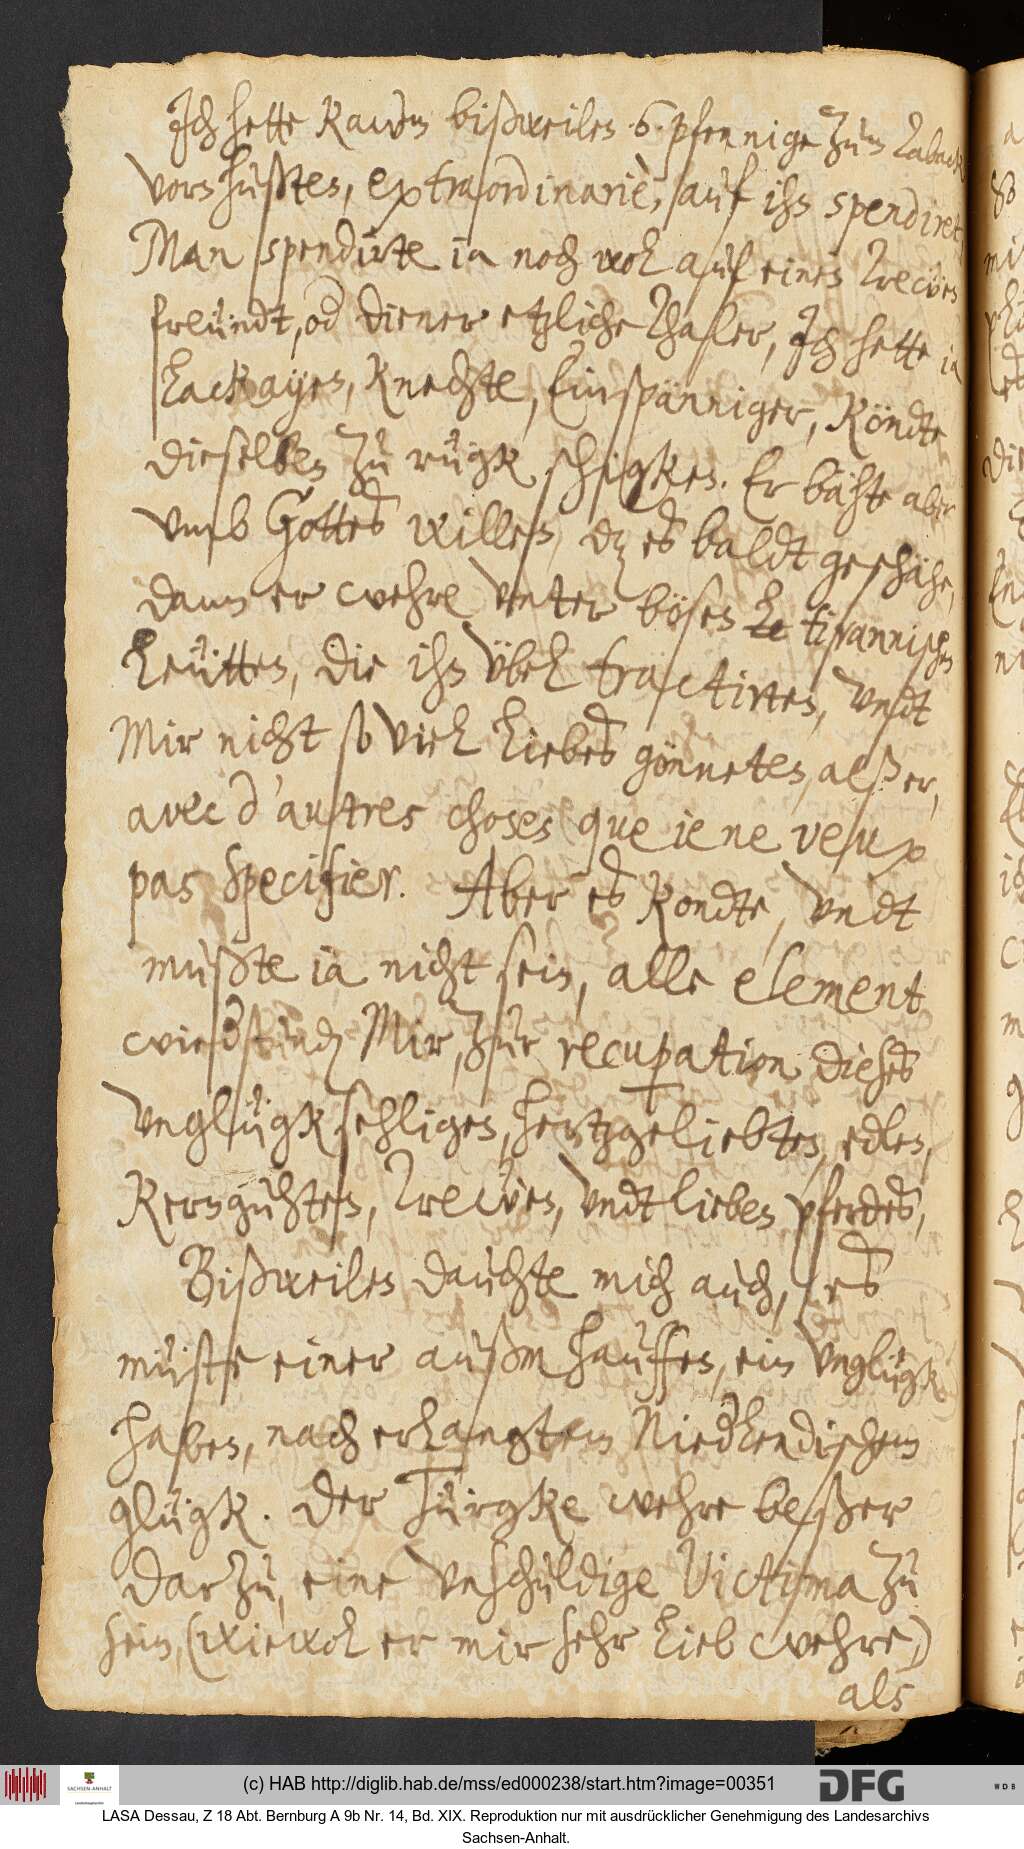 Jch hette kaum bißweilen 6 pfennige zum Taback
vorm husten, extraordinariè, auf ihn spendiret,
Man spendirte ia noch wol auf eines Trewen
freundt, od diener etzliche Thaler, Jch hette ia
Lackayen, knechte, Einspänniger, köndte
dieselben zu rügk schigken. Er bähte aber
umb Gottes willen, dz es baldt geschähe,
dann er wehre unter bösen Le tirannischen
Leütten, die ihn übel tractirten, undt
Mir nicht so viel Liebes gönneten, alß er,
avec d'autres choses que ie ne veux
pas specifier. Aber es kondte, undt
mußte ia nicht sein, alle element
wiedstundẽ Mir, zur recuperation dieses
unglügksehligen, hertzgeliebten, edlen,
kernguhten, Trewen, undt lieben pferdes,
Bißweilen dauchte mich auch, es
müste einer außm hauffen, ein unglügk
haben, nach erlangtem Niedlendischem
glügk. Der Türgke wehre beßer
darzu, eine unschuldige Victima zu
sein, (wiewol er mir sehr lieb wehre)
als
(c) HAB http://diglib.hab.de/mss/ed000238/start.htm?image=00351
SACHSEN-ANHALT
DFG
WDB
LASA Dessau, Z 18 Abt. Bernburg A 9b Nr. 14, Bd. XIX. Reproduktion nur mit ausdrücklicher Genehmigung des Landesarchivs
Sachsen-Anhalt.